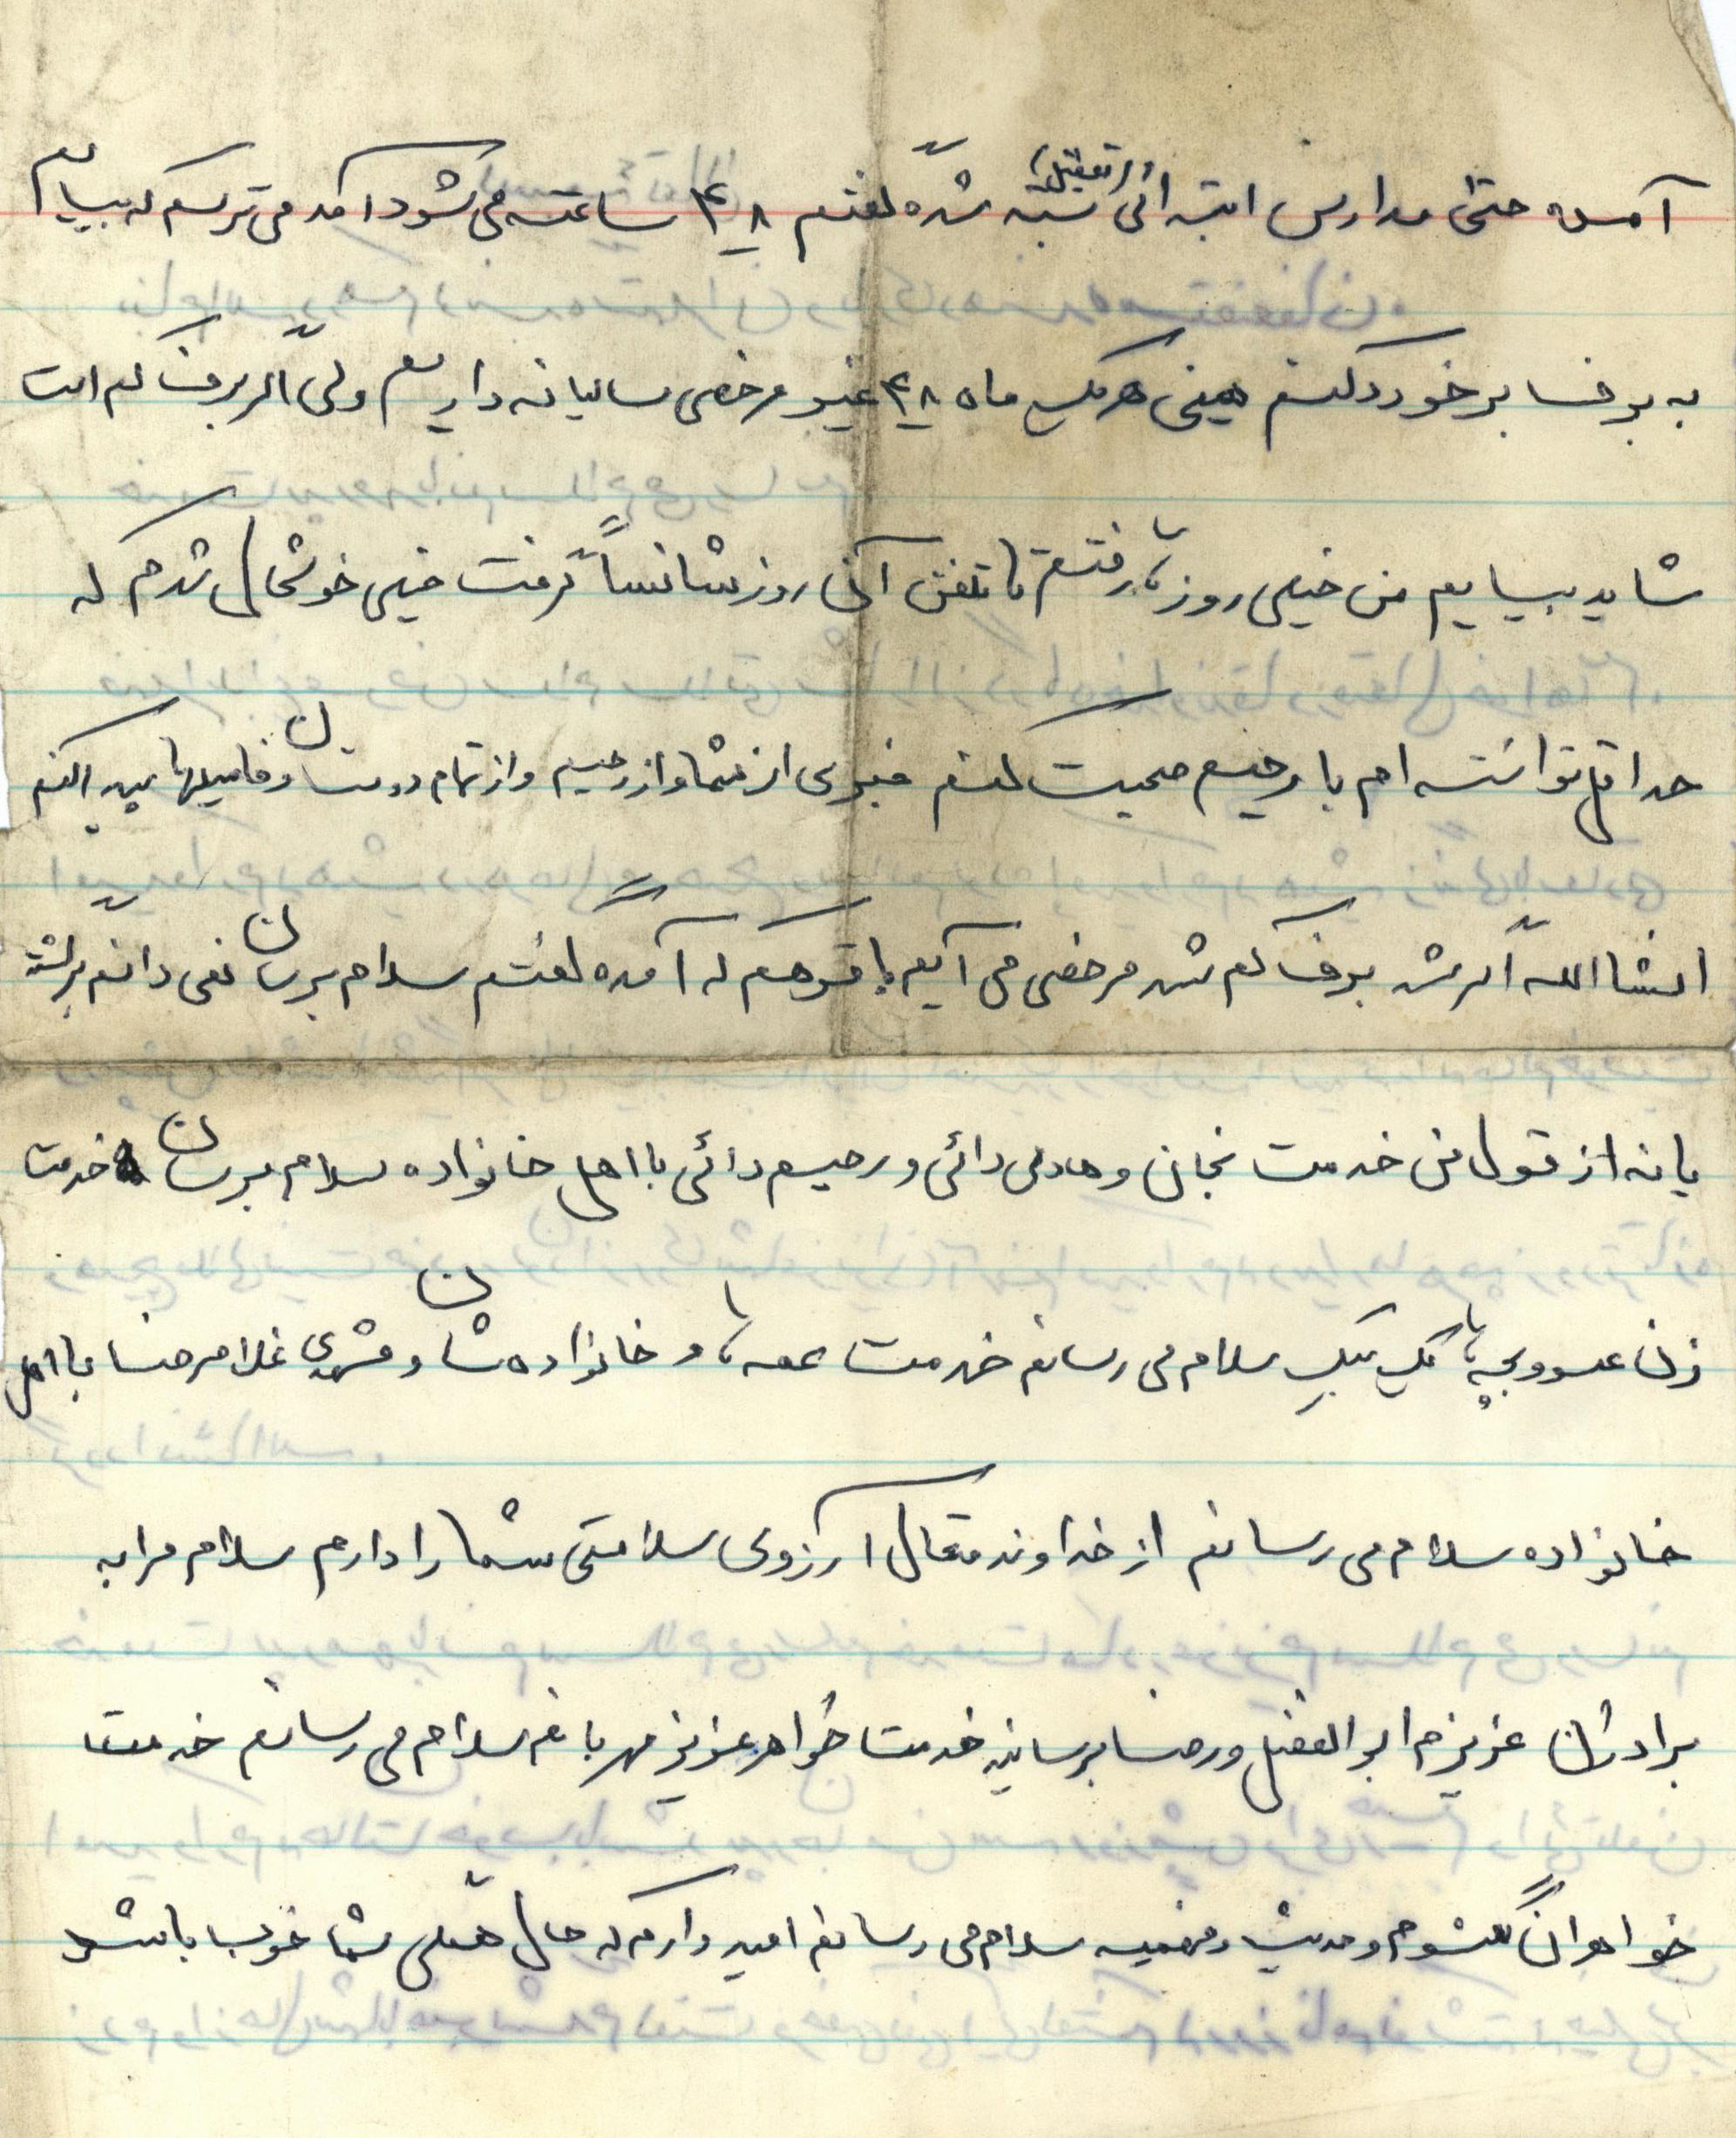 آمده حتی مدارس ابتدائی بسته شده گفتم ۴۸ ساعته می شود آمد می ترسم که بیایم
به برف برخورد کنم یعنی هر یک ماه ۴۸ غیر مرخصی سالیانه داریم ولی اگر برف کم است
شاید بیایم من خیلی روزها رفتم تا تلفن آن روز شانساً گرفت خیلی خوشحال شدم که
حداقل توانسته ام با رحیم صحبت کنم خبری از شما و از رحیم و از تمام دوستان و فامیلها پیدا کنم
انشاالله اگرش برف کم شد مرخصی می آیم باقر هم که آمده گفتم سلام برسان نمی دانم برگشته
یا نه از قول من خدمت و هادی دائی و رحیم دائی با اهل خانواده سلام برسان خدمت
زن عمو و بچه ها یک یک سلام می رسانم خدمت عمه ها و خانواده شان و مشهدی غلامرضا با اهل
خانواده سلام می رسانم از خداوند متعال آرزوی سلامتی شما را دارم سلام مرا به
برادران عزیزم ابوالفضل و رضا برسانید خدمت خواهر عزیز مهربانم سلام می رسانم خدمت
خواهران کلثوم و و سلام می رسانم امید دارم که حال همگی شما خوب باشد